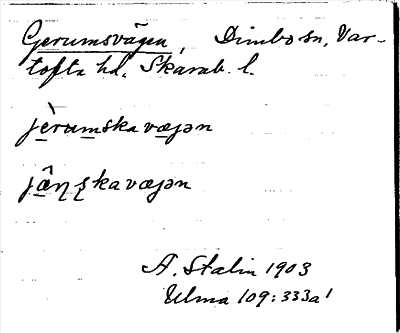 Gerumsvägen, Dimbo sn, Var-
tofta hd. Skarab. l.
jèrumska væjən
jâŋska væjən
A. Stalin 1903
Ulma 109:333a1